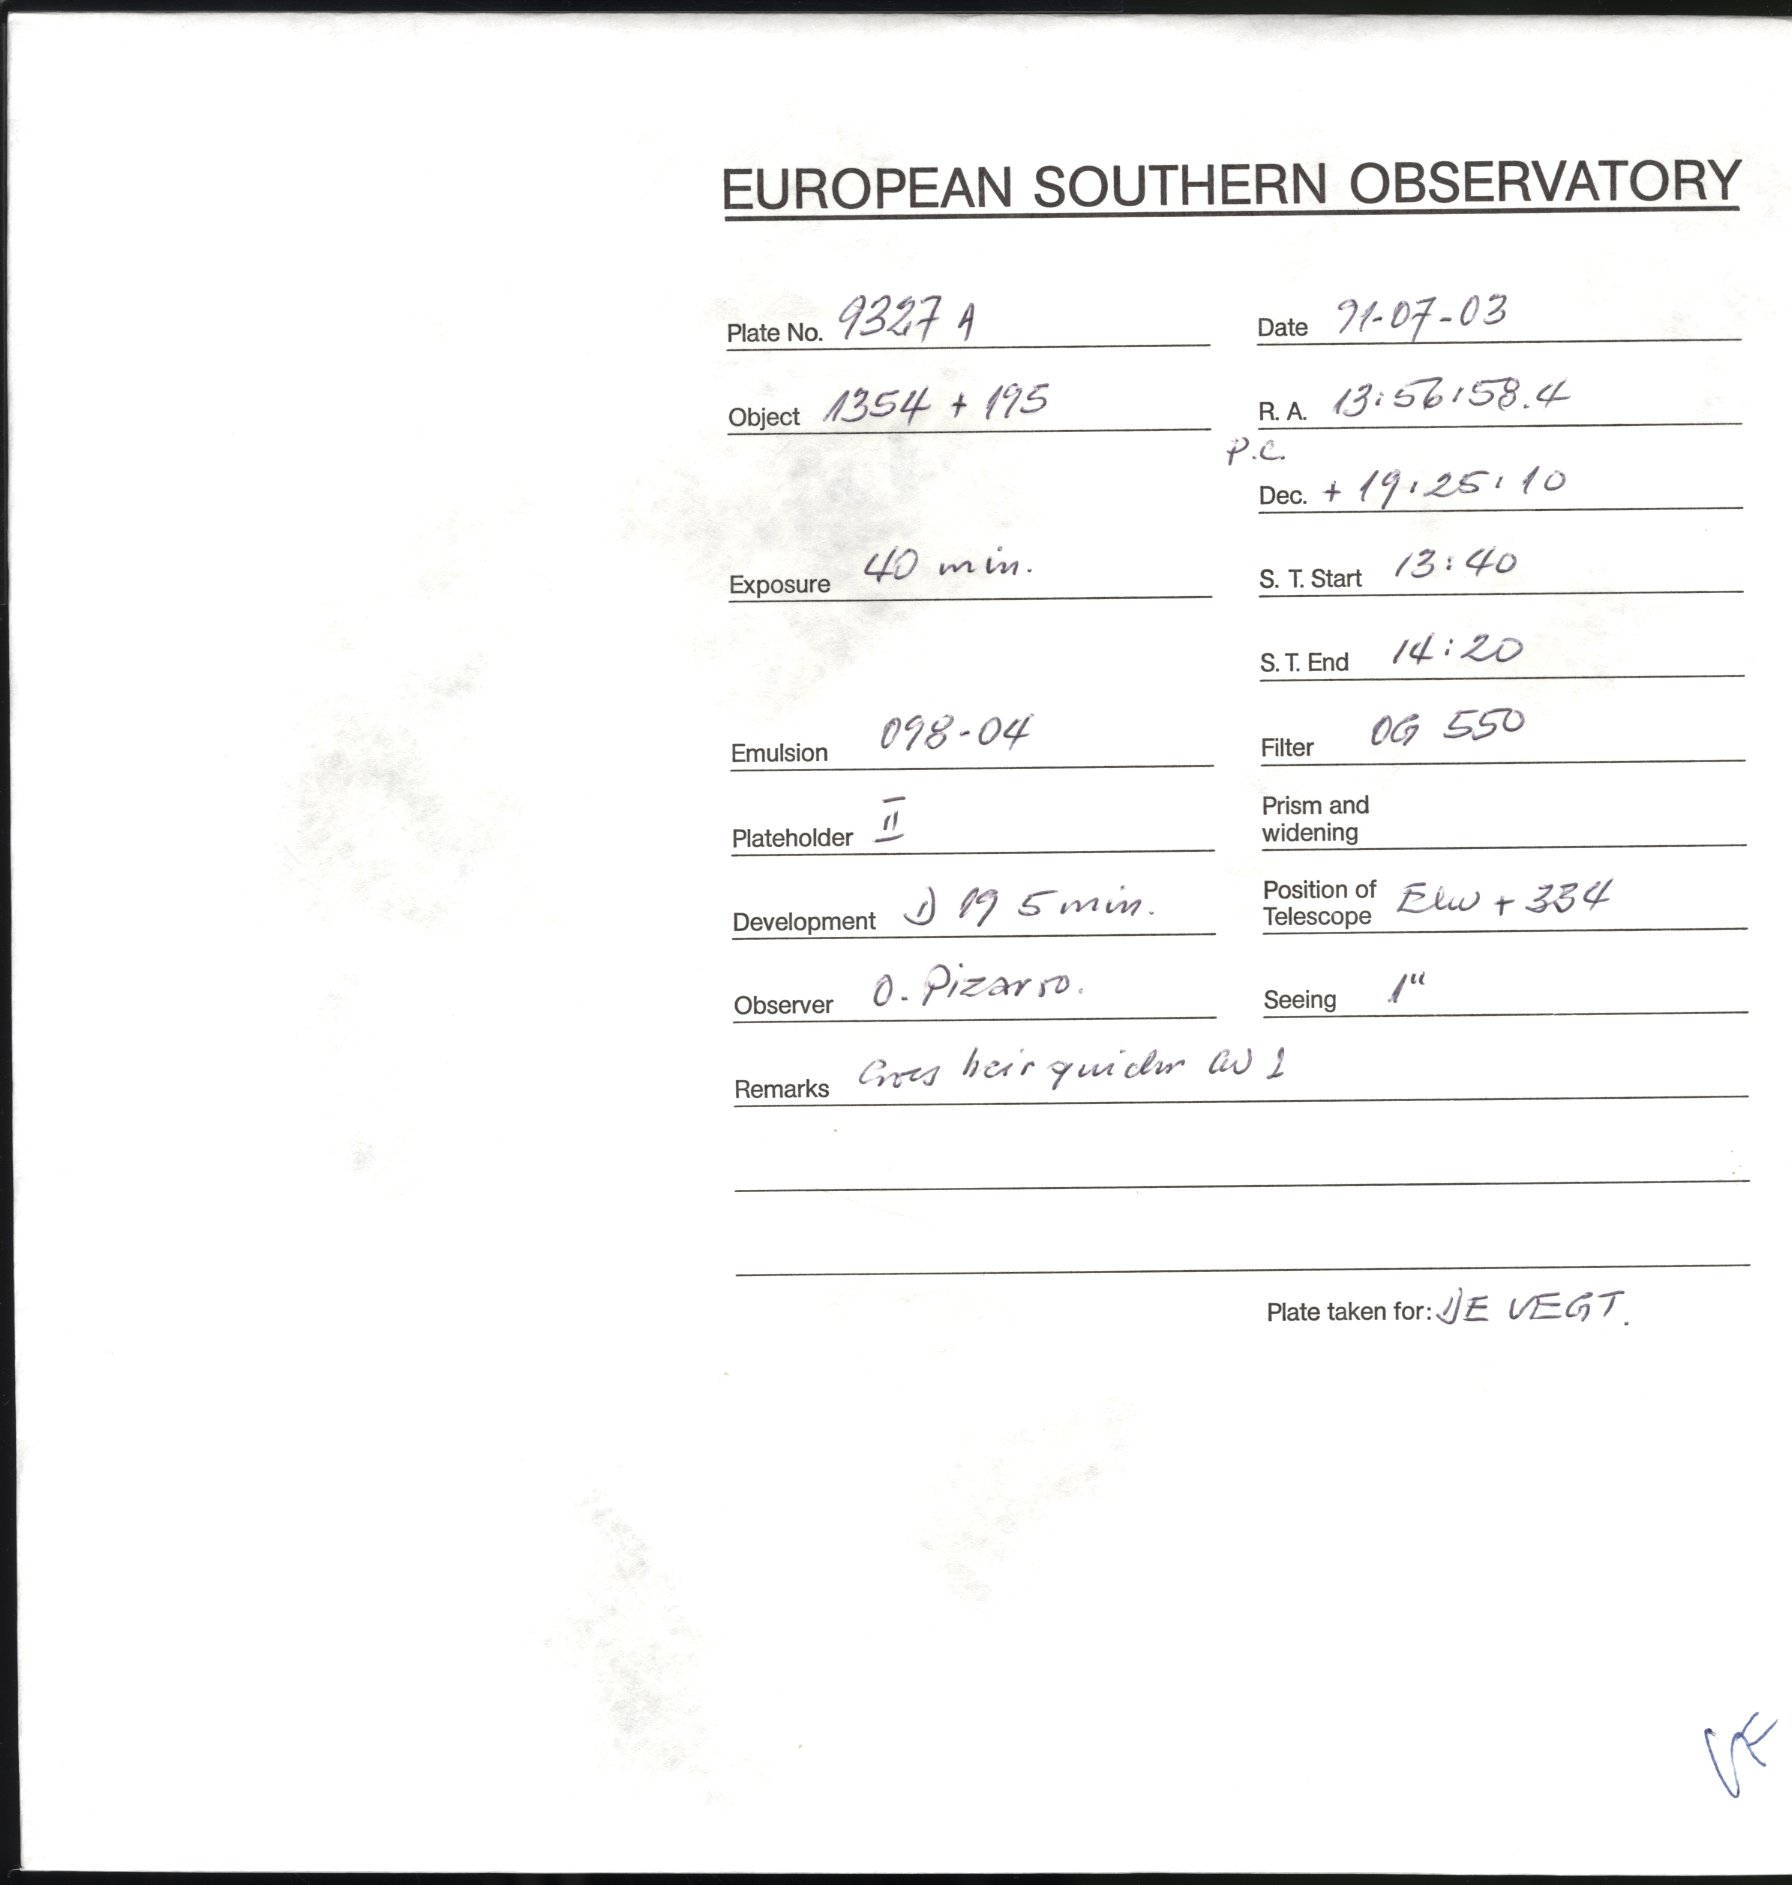 EUROPEAN SOUTHERN OBSERVATORY
Plate No. 9327 A Date 91-07-03
Object 1354 + 195 R. A. 13:56:58.4
P.C.
Dec. + 19:25:10
Exposure 40 min. S. T. Start 13:40
S. T. End 14:20
Emulsion 098-04 Filter OG 550
Plateholder II Prism and
widening
Development D 19 5 min. Position of
Telescope + 334
Observer O. Pizarro. Seeing 1"
Remarks Cross heir guider
Plate taken for: DE VEGT.